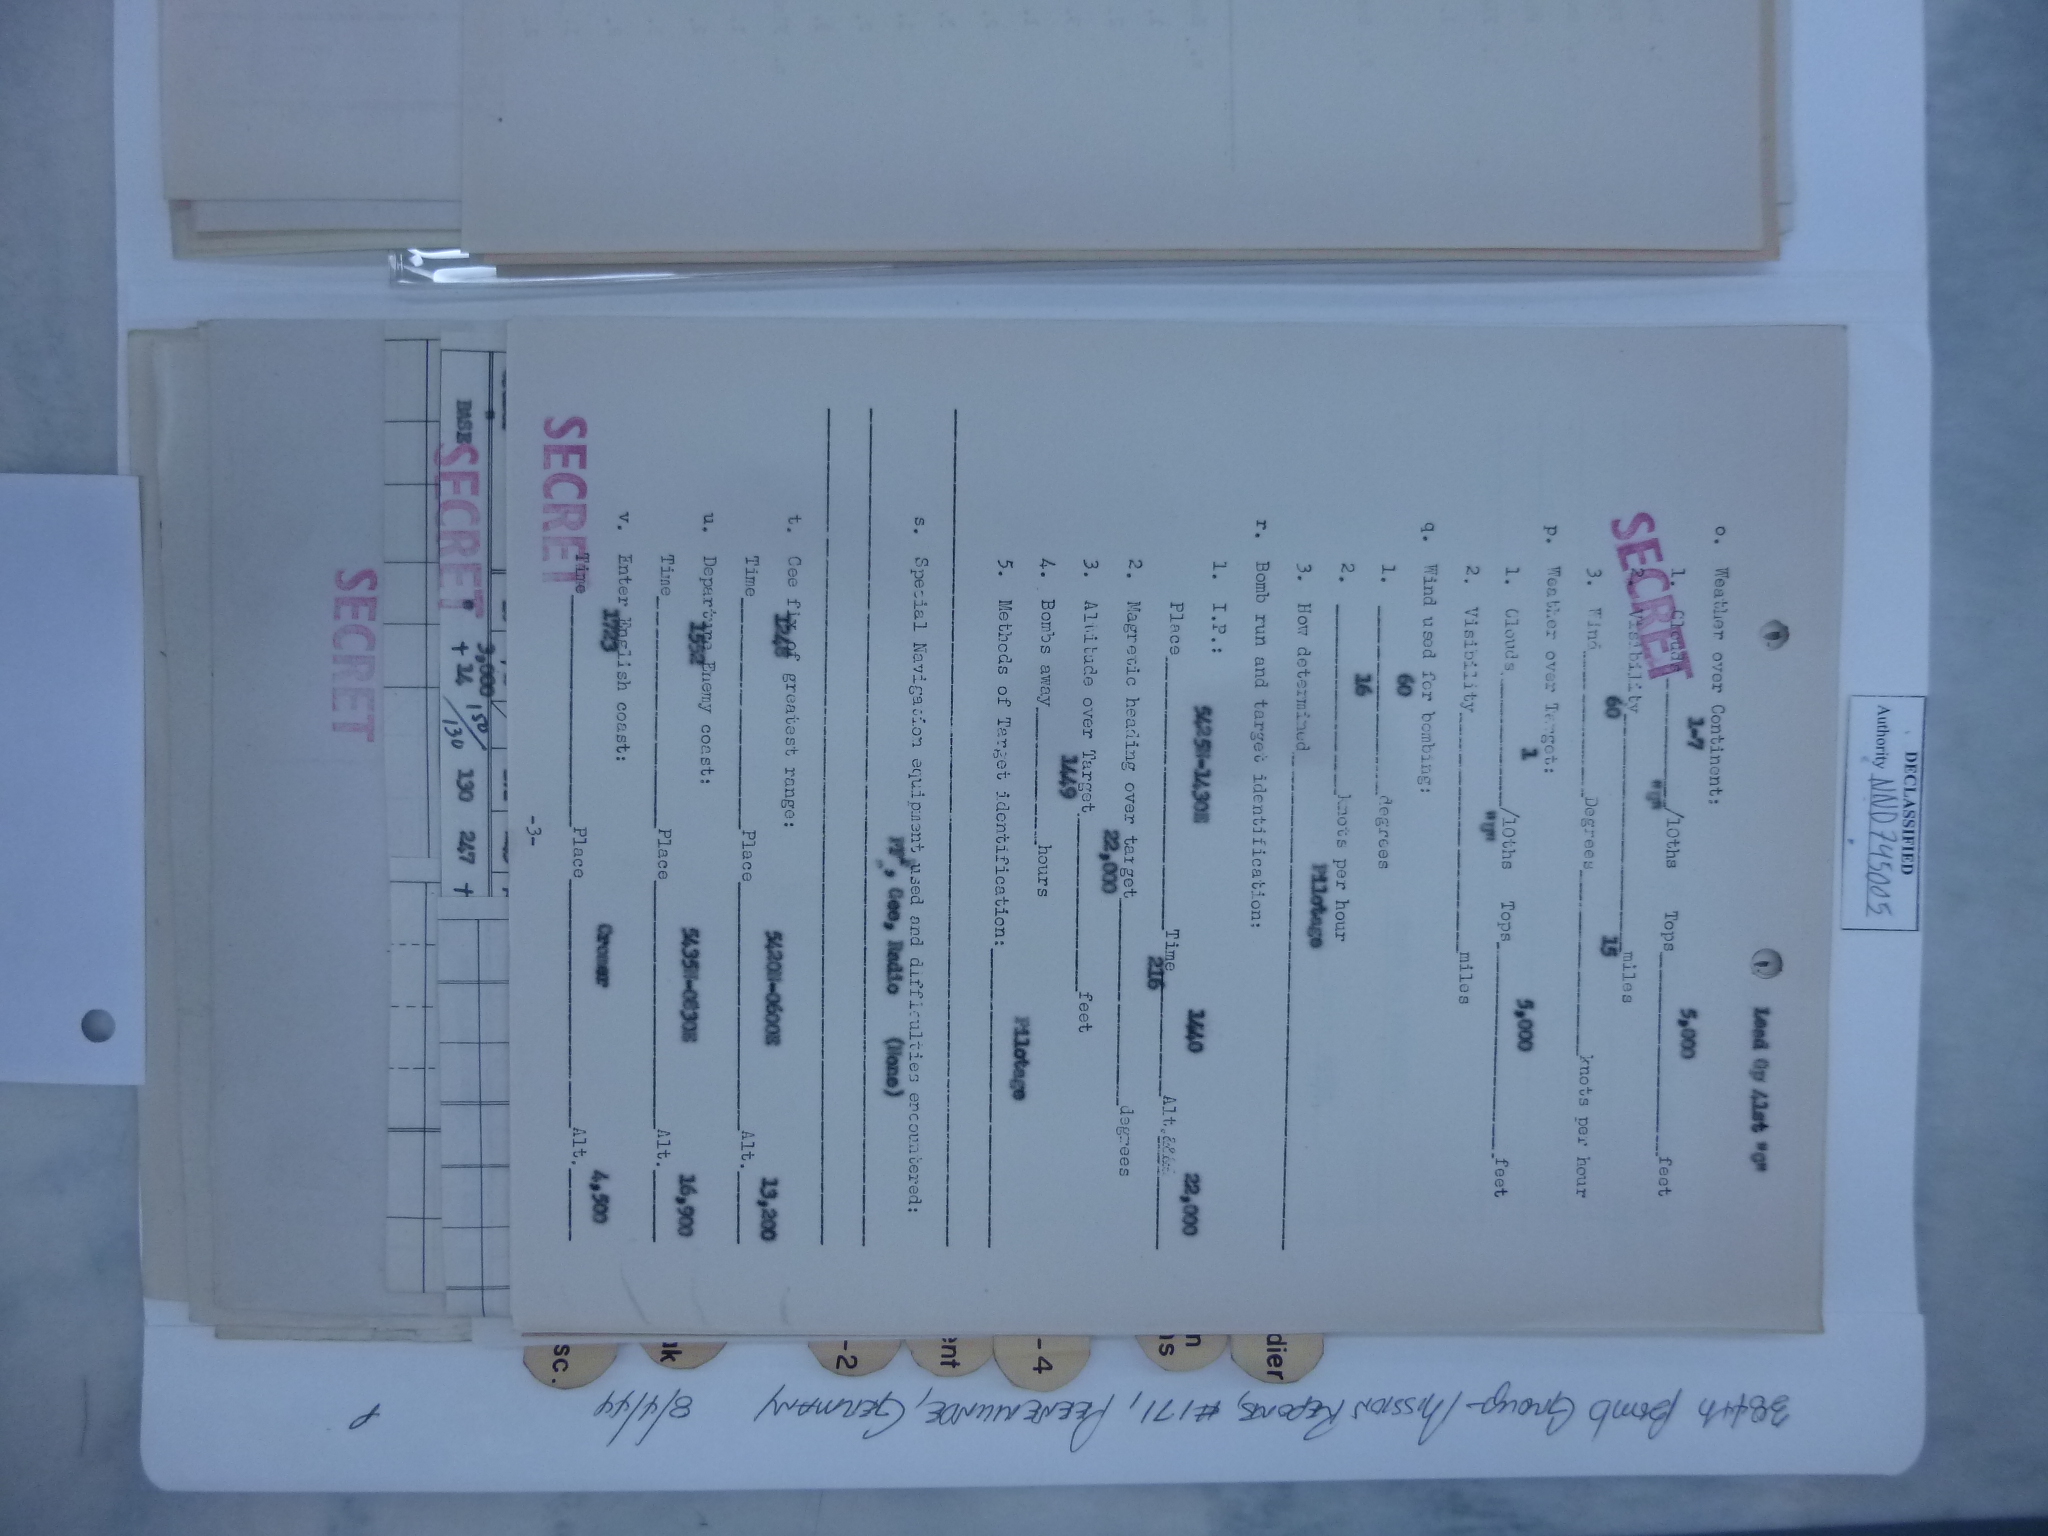 DECLASSIFIED
Authority NND 745005
Lead Gp 41st "C"
o. Weather over Continent:
1-7 5,000
1. Clouds /10ths Tops feet
"U"
2. Visibility miles
60 15
3. Wind Degrees knots per hour
p. Weather over Target:
1 5,000
1. Clouds /10ths Tops feet
"U"
2. Visibility miles
q. Wind used for bombing:
60
1. degrees
16
2. knots per hour
Pilotage
3. How determined
r. Bomb run and target identification:
1. I.P.:
5425N-1430E 1440 22,000
Place Time Alt.
216
2. Magnetic heading over target degrees
22,000
3. Altitude over Target feet
1449
4. Bombs away hours
Pilotage
5. Methods of Target identification:
s. Special Navigation equipment used and difficulties encountered:
PFF, Gee, Radio (None)
t. Gee fix of greatest range:
1548 5420N-0600E 13,200
Time Place Alt.
u. Departure Enemy coast:
1532 5435N-0830E 16,900
Time Place Alt.
v. Enter English coast:
1723 Cromer 4,500
Time Place Alt.
-3-
SECRET
SECRET
SECRET
SECRET
BASE
3,000 150
+ 24 /130 130 247 +
dier
n
ns
-4
ent
-2
nk
sc.
384th Bomb Group - Mission Reports, #171, PEENEMUNDE, GERMANY 8/4/44